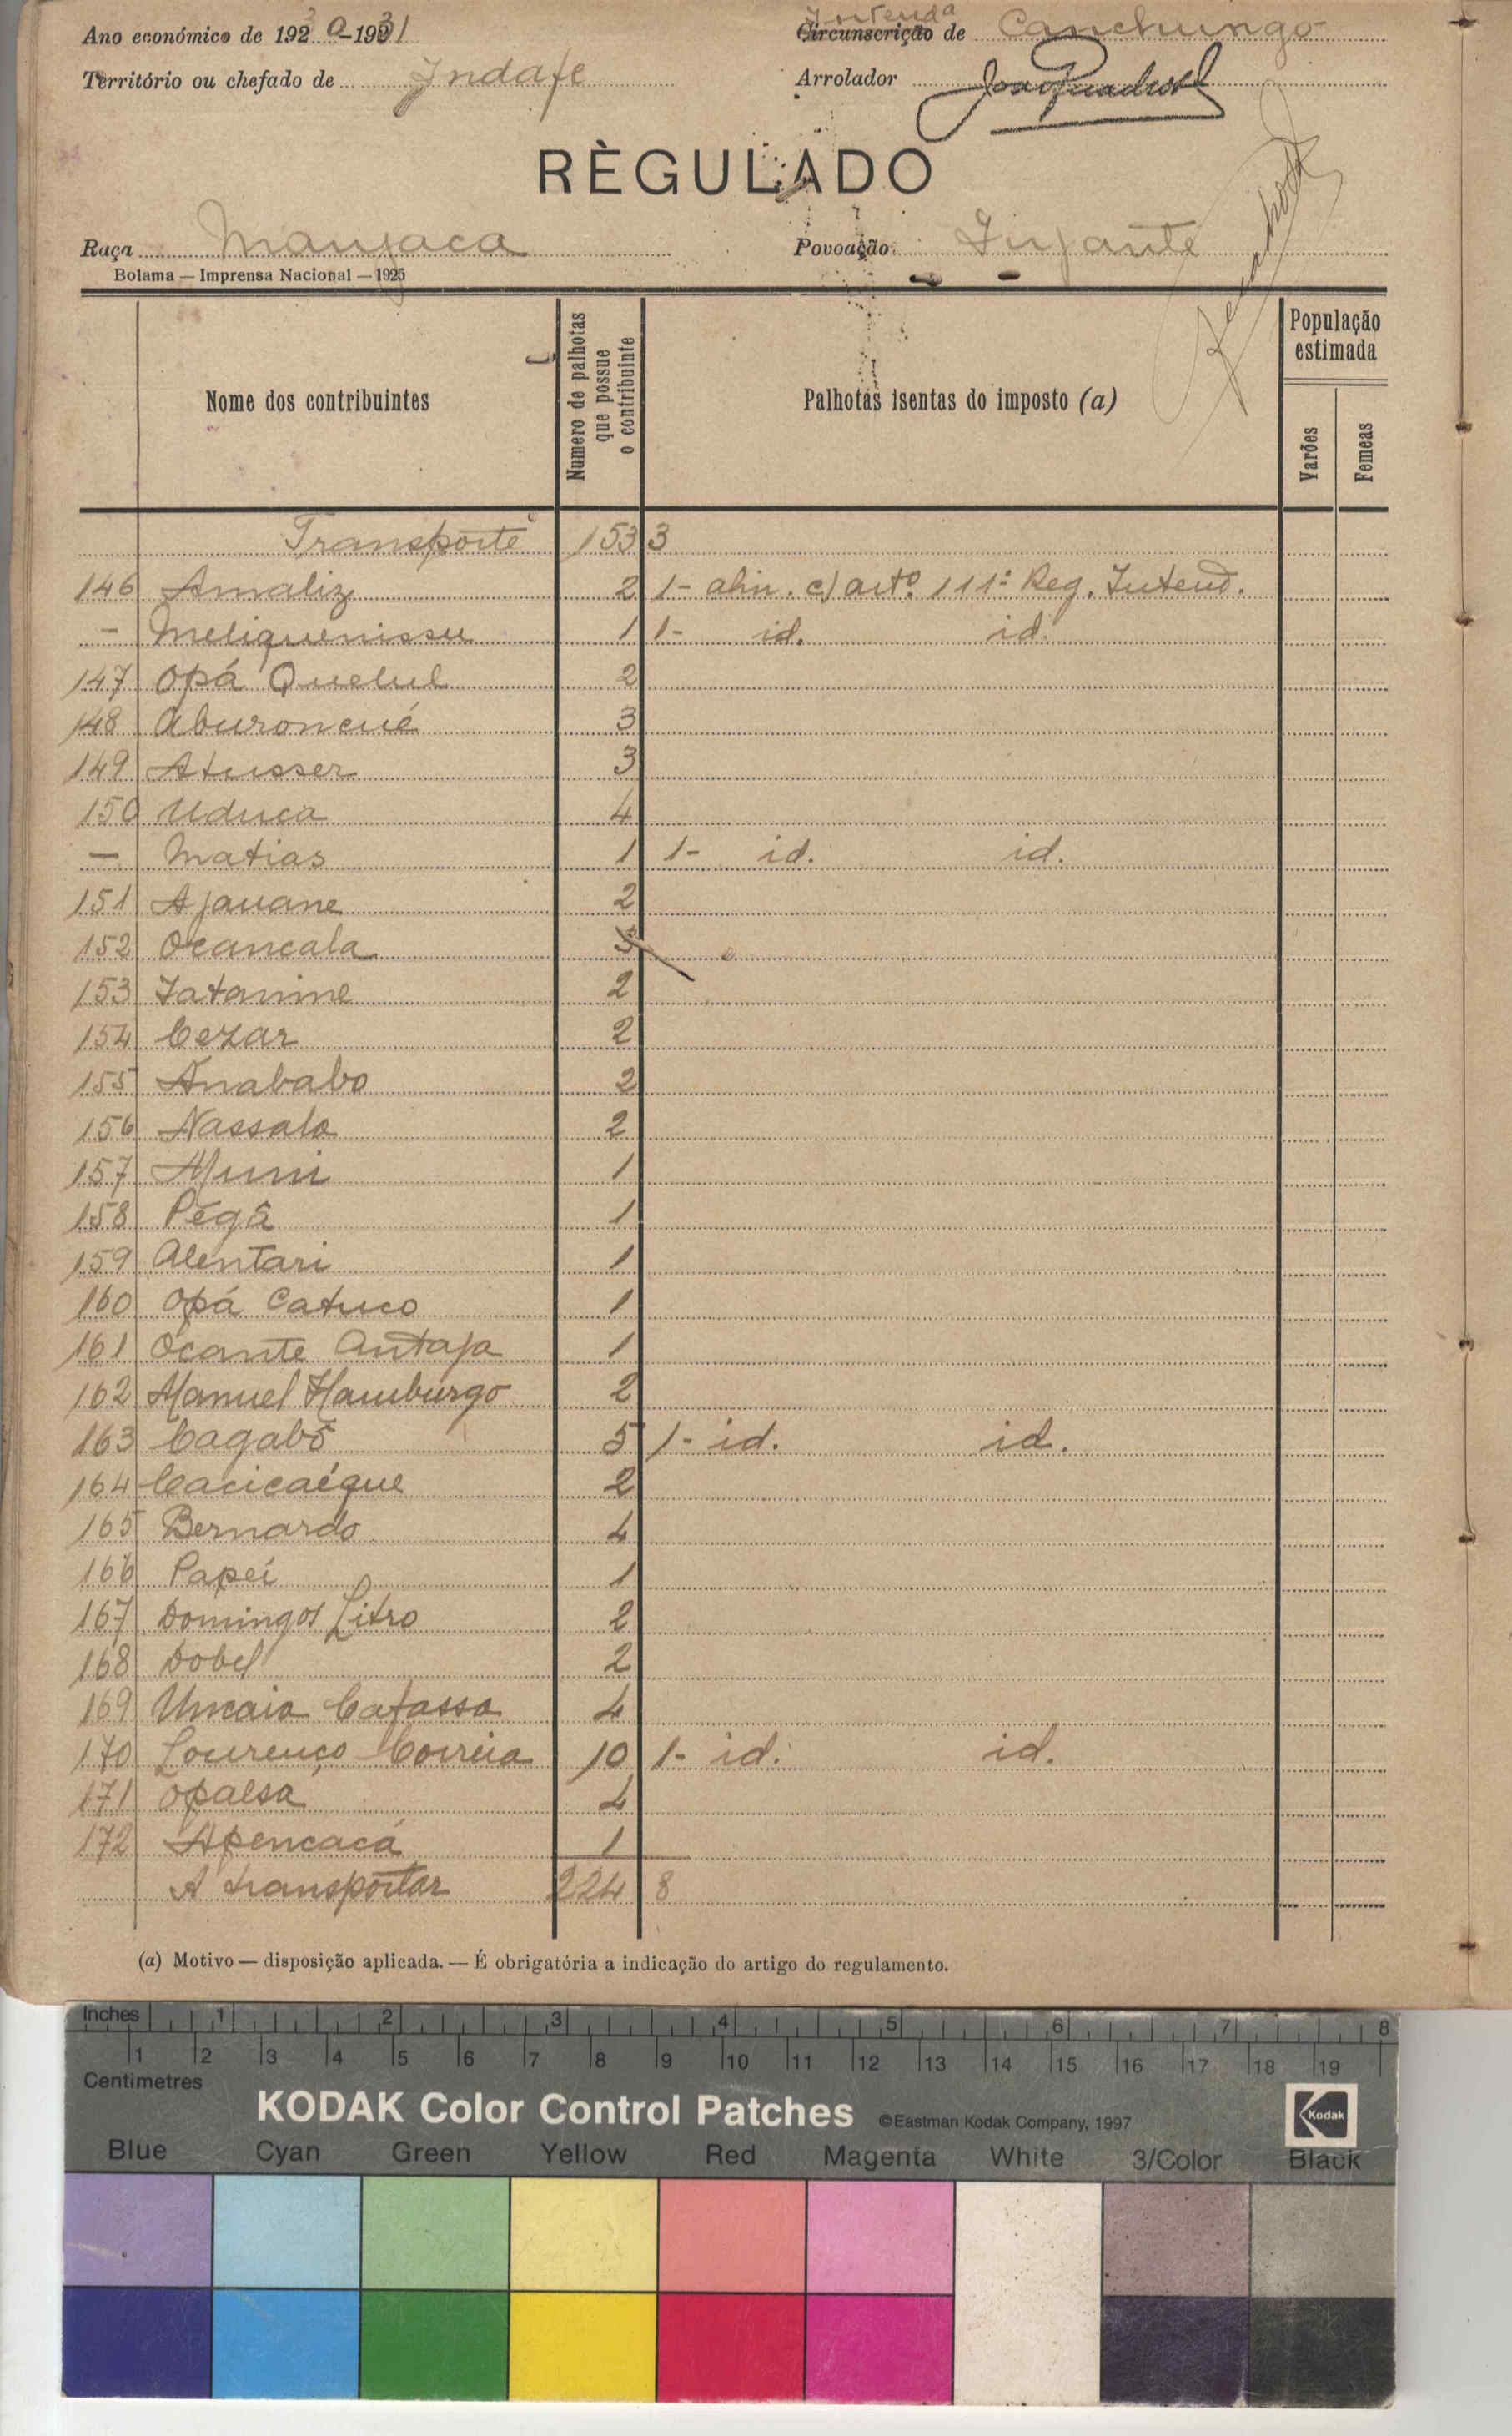 Ano económico de 1930-1931 Intenda Circunscrição de Canchungo
Território ou chefado de Indafe Arrolador
RÈGULADO
Raça Manjaca Povoação
Bolama — Imprensa Nacional — 1925
Nome dos contribuintes Numero de palhotas que possue o contribuinte Palhotas isentas do imposto (a) População estimada Varões Femeas
Transporte 153 3
146 Amaliz 2 1- alin. c) artº 111º Reg. Intend.
— Meliquenissu 1 1- id. id.
147 Opá Quelul 2
148 Aburoncué 3
149 Atusser 3
150 Uduca 4
— Matias 1 1- id. id.
151 Ajauane 2
152 Ocancala
153 Jatanine 2
154 Cezar 2
155 Anababo 2
156 Nassalo 2
157 Muni 1
158 Pegâ 1
159 Alentari 1
160 Opá Catuco 1
161 Ocante Antaja 1
162 Manuel Hamburgo 2
163 Cagabó 5 1- id. id.
164 Cacicaéque 2
165 Bernardo 4
166 Papei 1
167 Domingos Litro 2
168 Dobel 2
169 Umcaio Cafassa 4
170 Lourenço Correia 10 1- id. id.
171 Opalsa
172 Apencacá 1
A transportar 224 8
(a) Motivo — disposição aplicada. — É obrigatória a indicação do artigo do regulamento.
Inches 1 2 3 4 5 6 7 8
1 2 3 4 5 6 7 8 9 10 11 12 13 14 15 16 17 18 19
Centimetres
KODAK Color Control Patches ©Eastman Kodak Company, 1997 Kodak
Blue Cyan Green Yellow Red Magenta White 3/Color Black